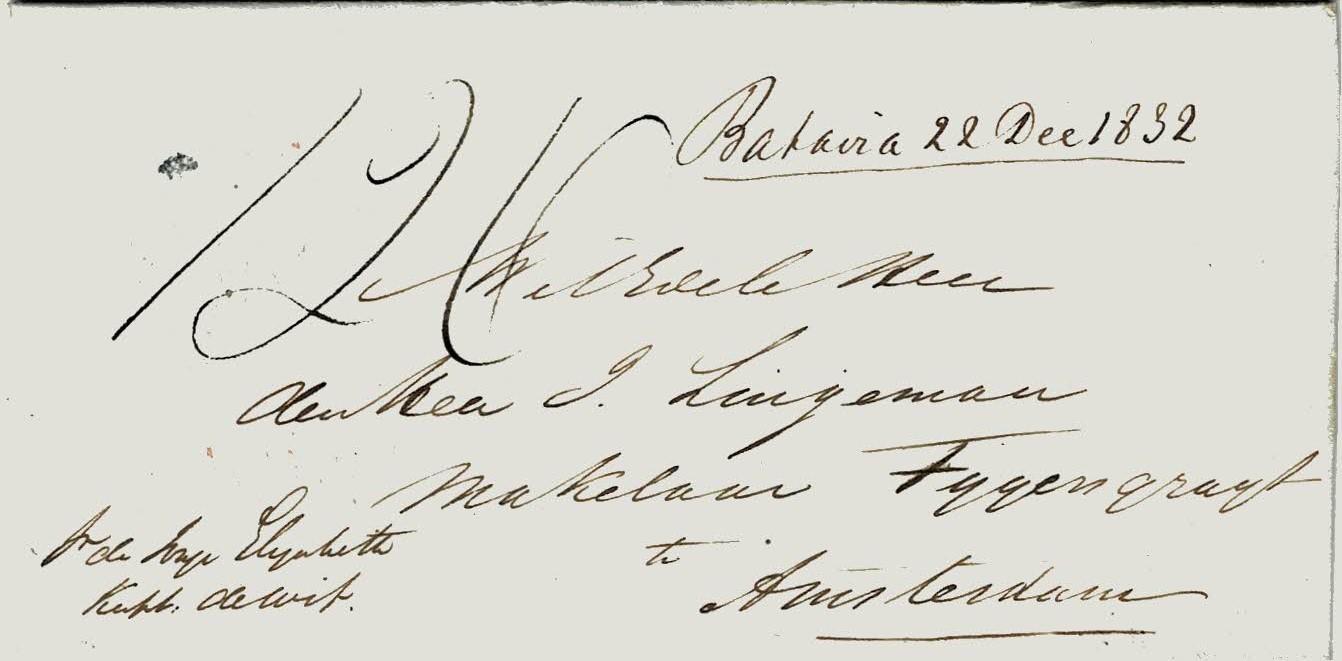 Batavia 22 Dec 1832
126
Weledele Heer
den Heer J. Lingeman
Makelaar Fygensgragt
te
Amsterdam
pr de Jonge Elizabeth
Kapt. de Wit.